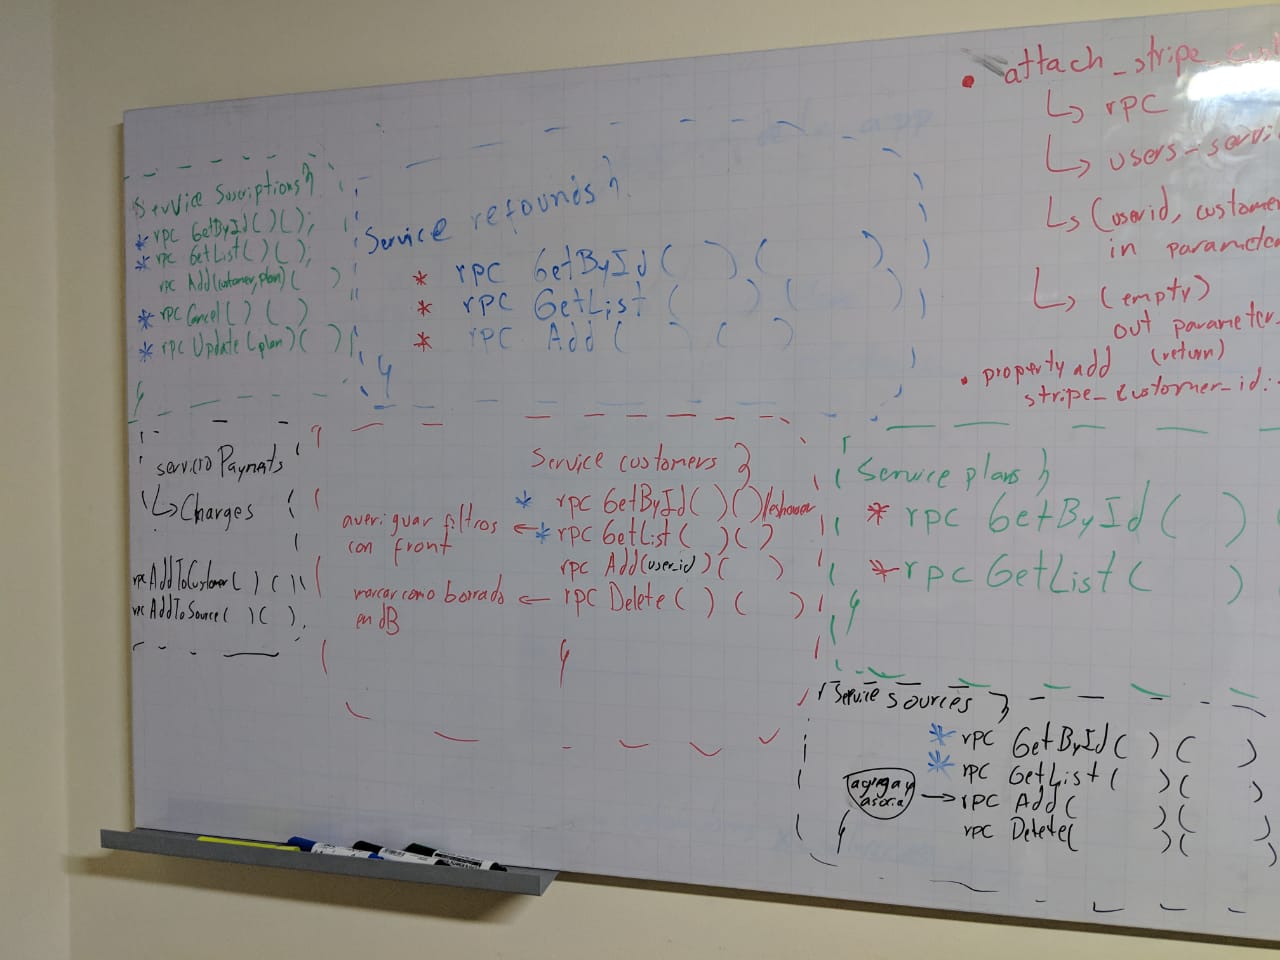 Service Suscriptions }
* rpc GetById( )( );
* rpc GetList( )( );
rpc Add(customer, plan)( )
* rpc Cancel( )( )
* rpc Update(plan)( )
}
Service refounds }
* rpc GetById( )( )
* rpc GetList( )( )
* rpc Add( )( )
}
• attach_stripe_
↳ rpc
↳ users-servi
↳ (userid, customer
in parameter
↳ (empty)
out parameter
(return)
• property add
stripe_customer_id:
servicio Payments
↳ Charges
rpc AddToCustomer( )( )
rpc AddToSource( )( )
Service customers }
* rpc GetById( )( )
averiguar filtros ← * rpc GetList( )( )
con front
rpc Add(user_id)( )
marcar como borrado ← rpc Delete( )( )
en dB
}
Service plans }
* rpc GetById( )
* rpc GetList( )
}
Service sources }
* rpc GetById( )( )
* rpc GetList( )( )
agrega y
asocia → rpc Add( )( )
rpc Delete( )( )
}